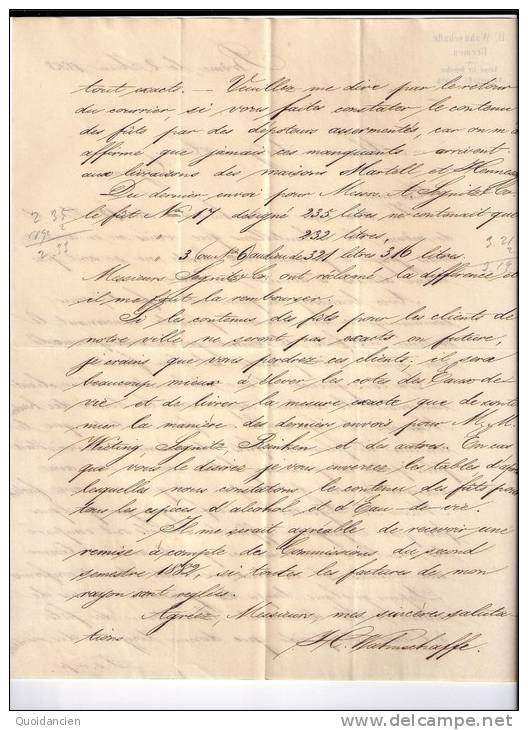 tout exacts. — Veuillez me dire par le retour
du courrier si vous faites constater le contenu
des fûts par des dépoteurs assermentés, car on m'a
affirmé que jamais ces manquants arrivent
aux livraisons des maisons Martell et Hennessy
Du dernier envoi pour Messrs. Segnitz & Co
le fût No 17 désigné 235 litres ne contenait que
232 litres,
" 3 No 6 au lieu de 321 litres 316 litres.
Messieurs Segnitz & Co. ont réclamé la différence et
il me faut la rembourser.
Si le contenus des fûts pour les clients de
notre ville ne seront pas exacts en future,
je crains que vous perdrez ces clients; il sera
beaucoup mieux à élever les cotes des Eaux de
vie et de livrer la mesure exacte que de conti
nuer la manière des derniers envois pour M. M.
Wieting, Segnitz, Reinken, et des autres. En cas
que vous le désirez je vous enverrez les tables d'après
lesquelles nous constatons le contenu des fûts pour
tous les espèces d'alcohol et d'Eau-de-vie.
Il me serait agréable de recevoir une
remise à compte des Commissions du second
semestre 1882, si toutes les factures de mon
rayon sont reglées.
Agréez, Messieurs, mes sincères saluta
tions
H. Wahnschaffe.
2 35
3 21
Quoidancien
www.delcampe.net